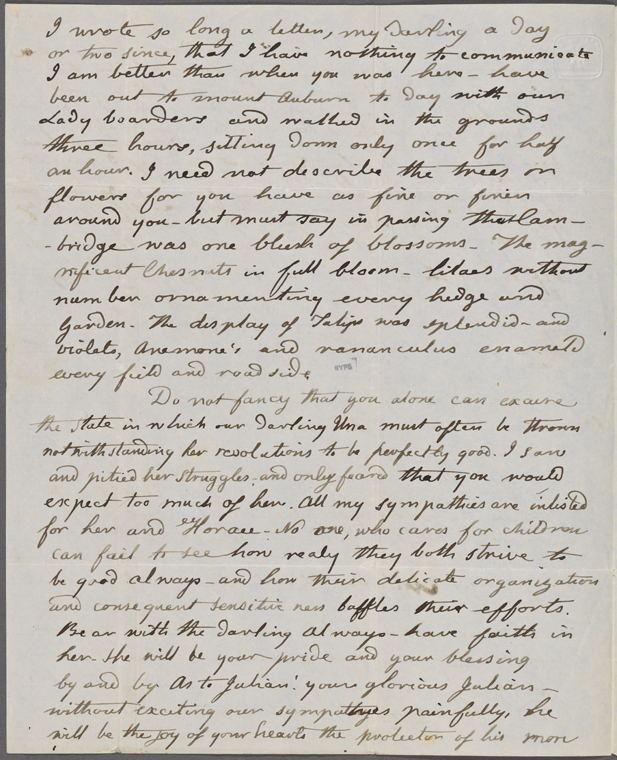 I wrote so long a letter, my darling a day
or two since, that I have nothing to communicate
I am better than when you was here - have
been out to mount Auburn to day with our
Lady boarders and walked in the grounds
three hours, sitting down only once for half
an hour. I need not describe the trees or
flowers for you have as fine or finer
around you - but must say in passing that Cam-
-bridge was one blush of blossoms - The mag-
nificent Chesnuts in full bloom - lilacs without
number ornamenting every hedge and
Garden - The display of Tulips was splendid - and
violets, Anemone's and rananculus enameld
every field and road side
NYPL
Do not fancy that you alone can excuse
the state in which our darling Una must often be thrown
notwithstanding her resolutions to be perfectly good. I saw
and pitied her struggles - and only feard that you would
expect too much of her. All my sympathies are inlisted
for her and Horace - No one, who cares for children
can fail to see how realy they both strive to
be good always - and how their delicate organization
and consequent sensitive ness baffles their efforts.
Bear with the darling always - have faith in
her. She will be your pride and your blessing
by and by. As to Julian! your glorious Julian -
without exciting our sympathyes painfully, he
will be the joy of your hearts the protector of his more